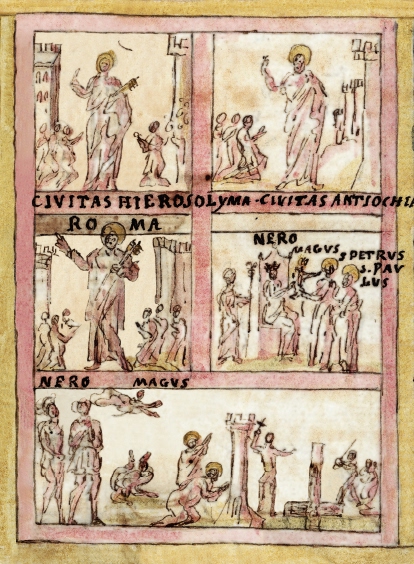 CIVITAS HIEROSOLYMA · CIVITAS ANTIOCHIA
RO MA
NERO
MAGVS
S PETRVS
S. PAV
LVS
NERO MAGVS